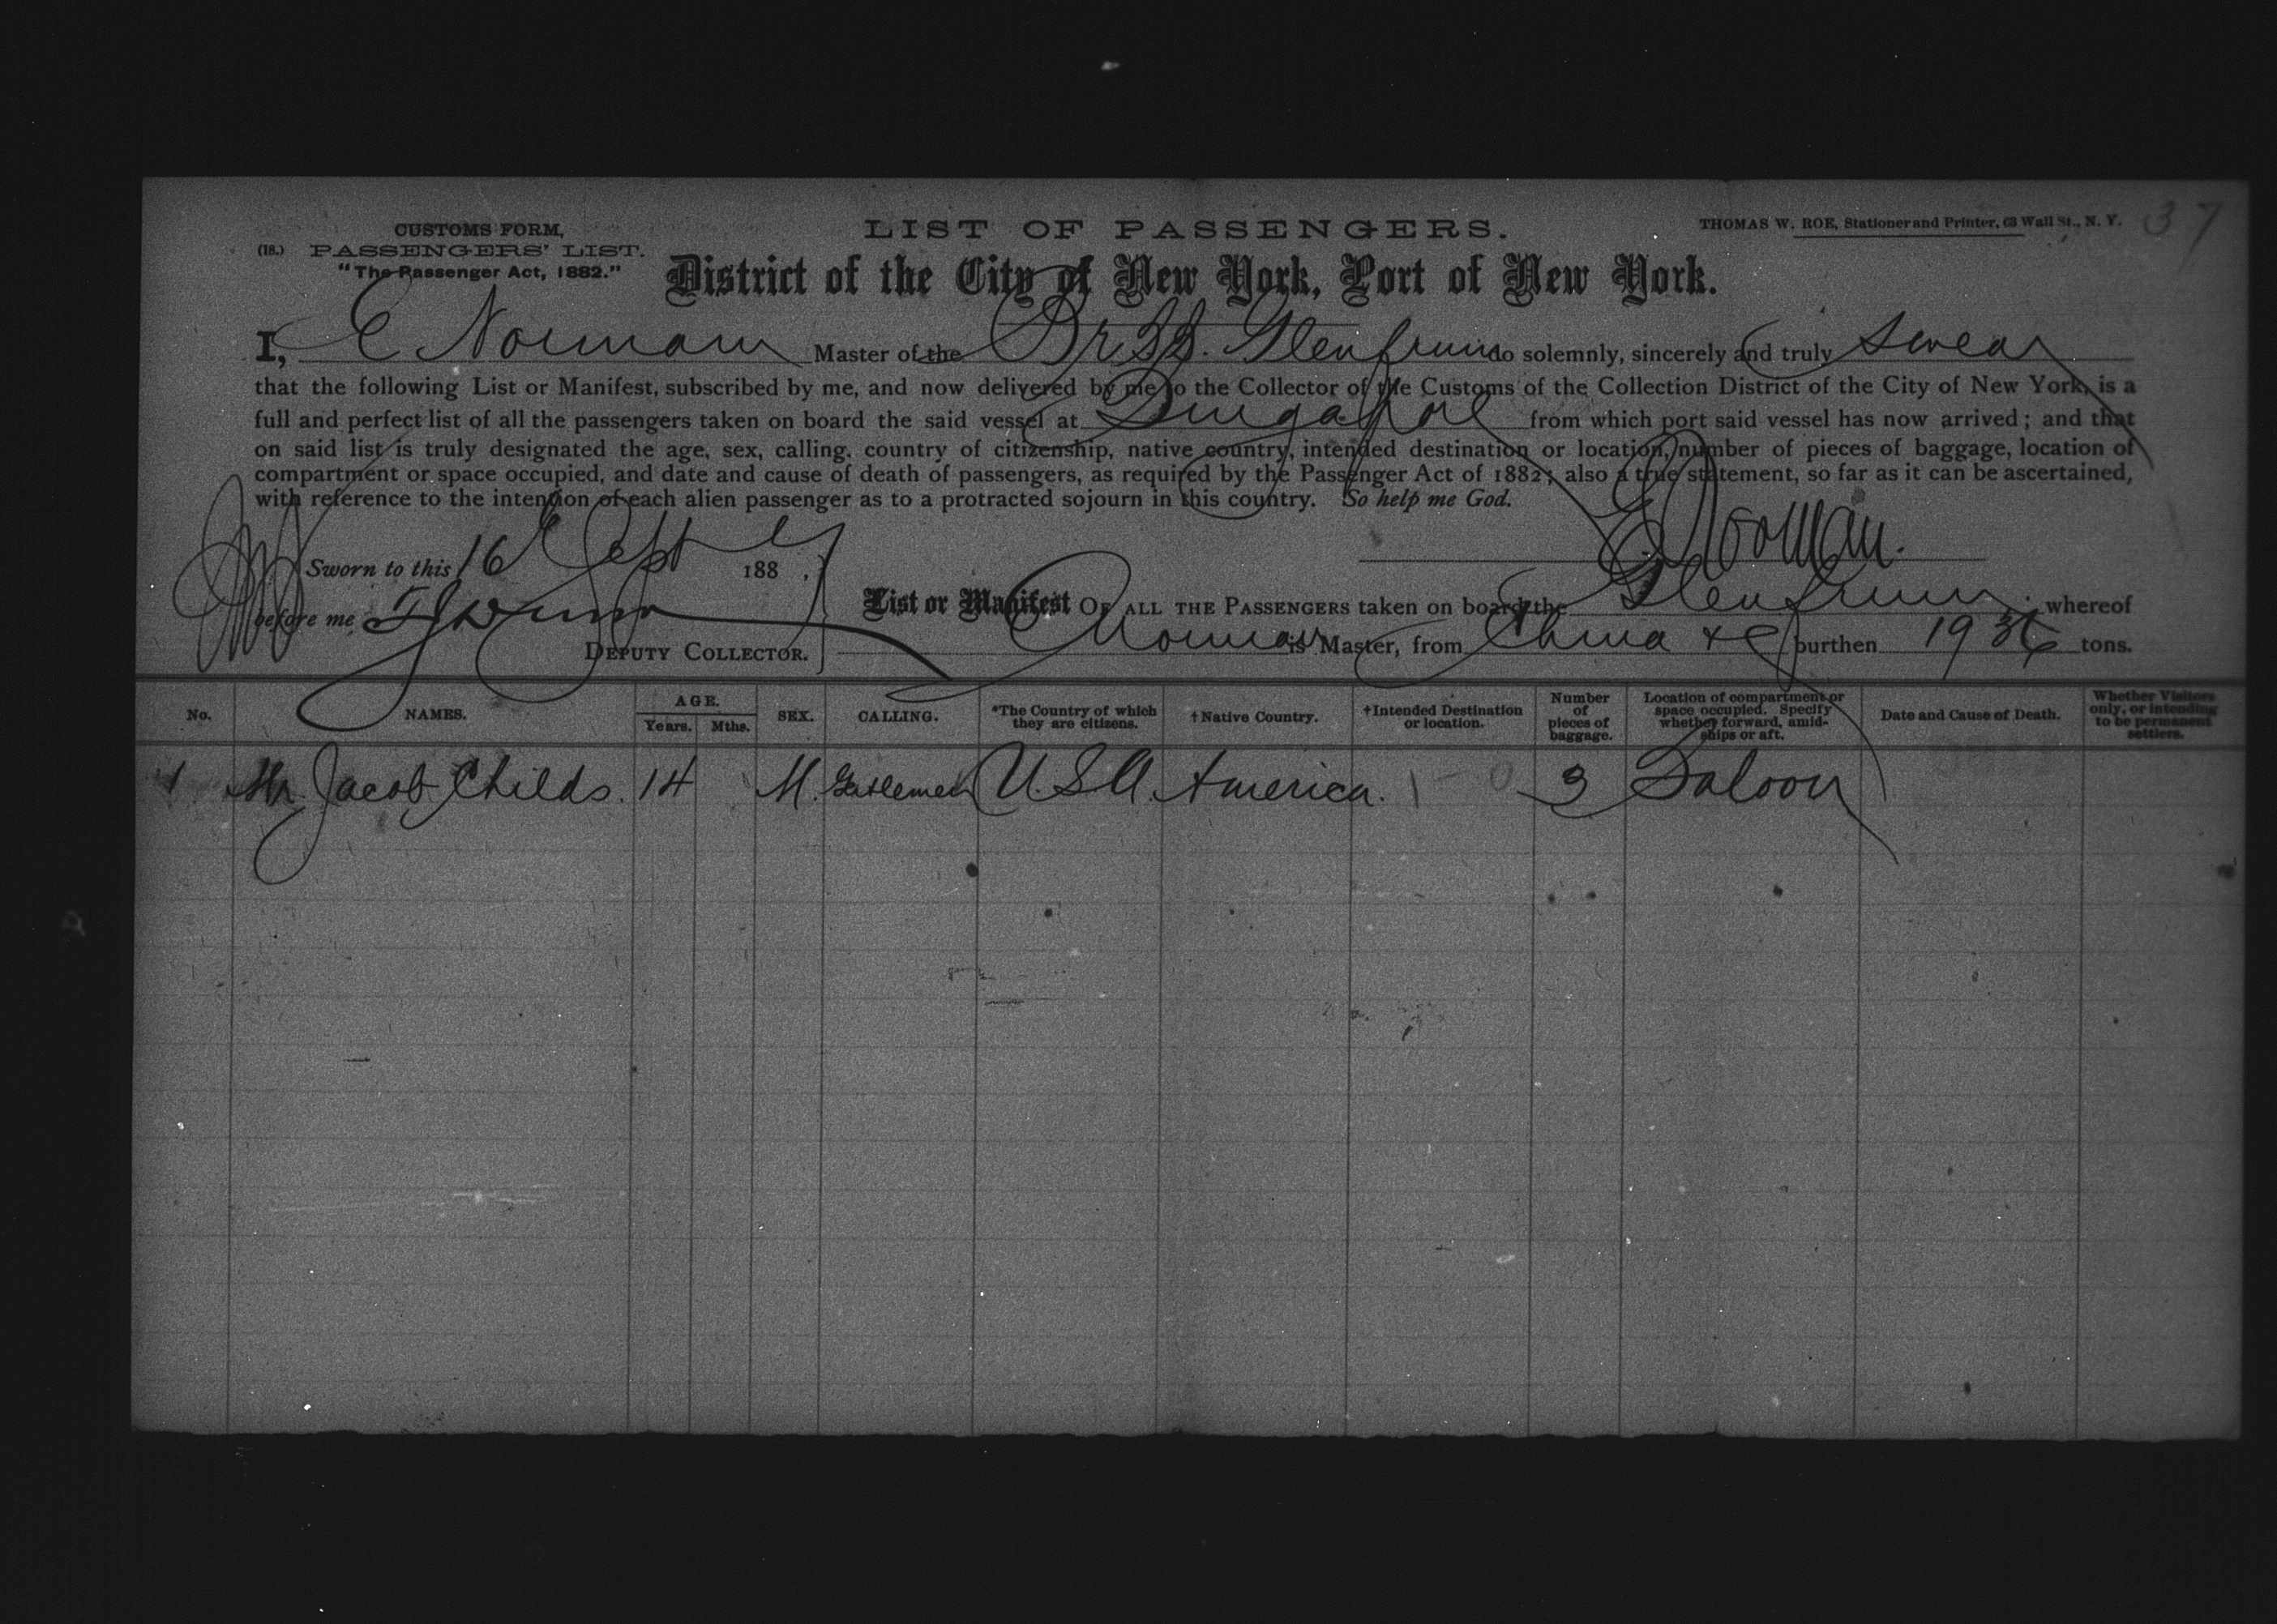 CUSTOMS FORM,
(18.) PASSENGERS' LIST.
"The Passenger Act, 1882."
LIST OF PASSENGERS.
THOMAS W. ROE, Stationer and Printer, 63 Wall St., N. Y.
37
District of the City of New York, Port of New York.
I, E Norman Master of the Br SS. Glenfruin do solemnly, sincerely and truly swear
that the following List or Manifest, subscribed by me, and now delivered by me to the Collector of the Customs of the Collection District of the City of New York, is a
full and perfect list of all the passengers taken on board the said vessel at Singapore from which port said vessel has now arrived; and that
on said list is truly designated the age, sex, calling, country of citizenship, native country, intended destination or location, number of pieces of baggage, location of
compartment or space occupied, and date and cause of death of passengers, as required by the Passenger Act of 1882; also a true statement, so far as it can be ascertained,
with reference to the intention of each alien passenger as to a protracted sojourn in this country. So help me God.
E Norman.
Sworn to this 16 Sept 188 .
before me
DEPUTY COLLECTOR.
List or Manifest OF ALL THE PASSENGERS taken on board the Glenfruin whereof
Norman is Master, from China &c burthen 1936 tons.
No. NAMES. AGE. Years. Mths. SEX. CALLING. *The Country of which they are citizens. †Native Country. †Intended Destination or location. Number of pieces of baggage. Location of compartment or space occupied. Specify whether forward, amidships or aft. Date and Cause of Death. Whether Visitors only, or intending to be permanent settlers.
1 Mr. Jacob Childs. 14 M. Gentleman U.S.A. America. 3 Saloon